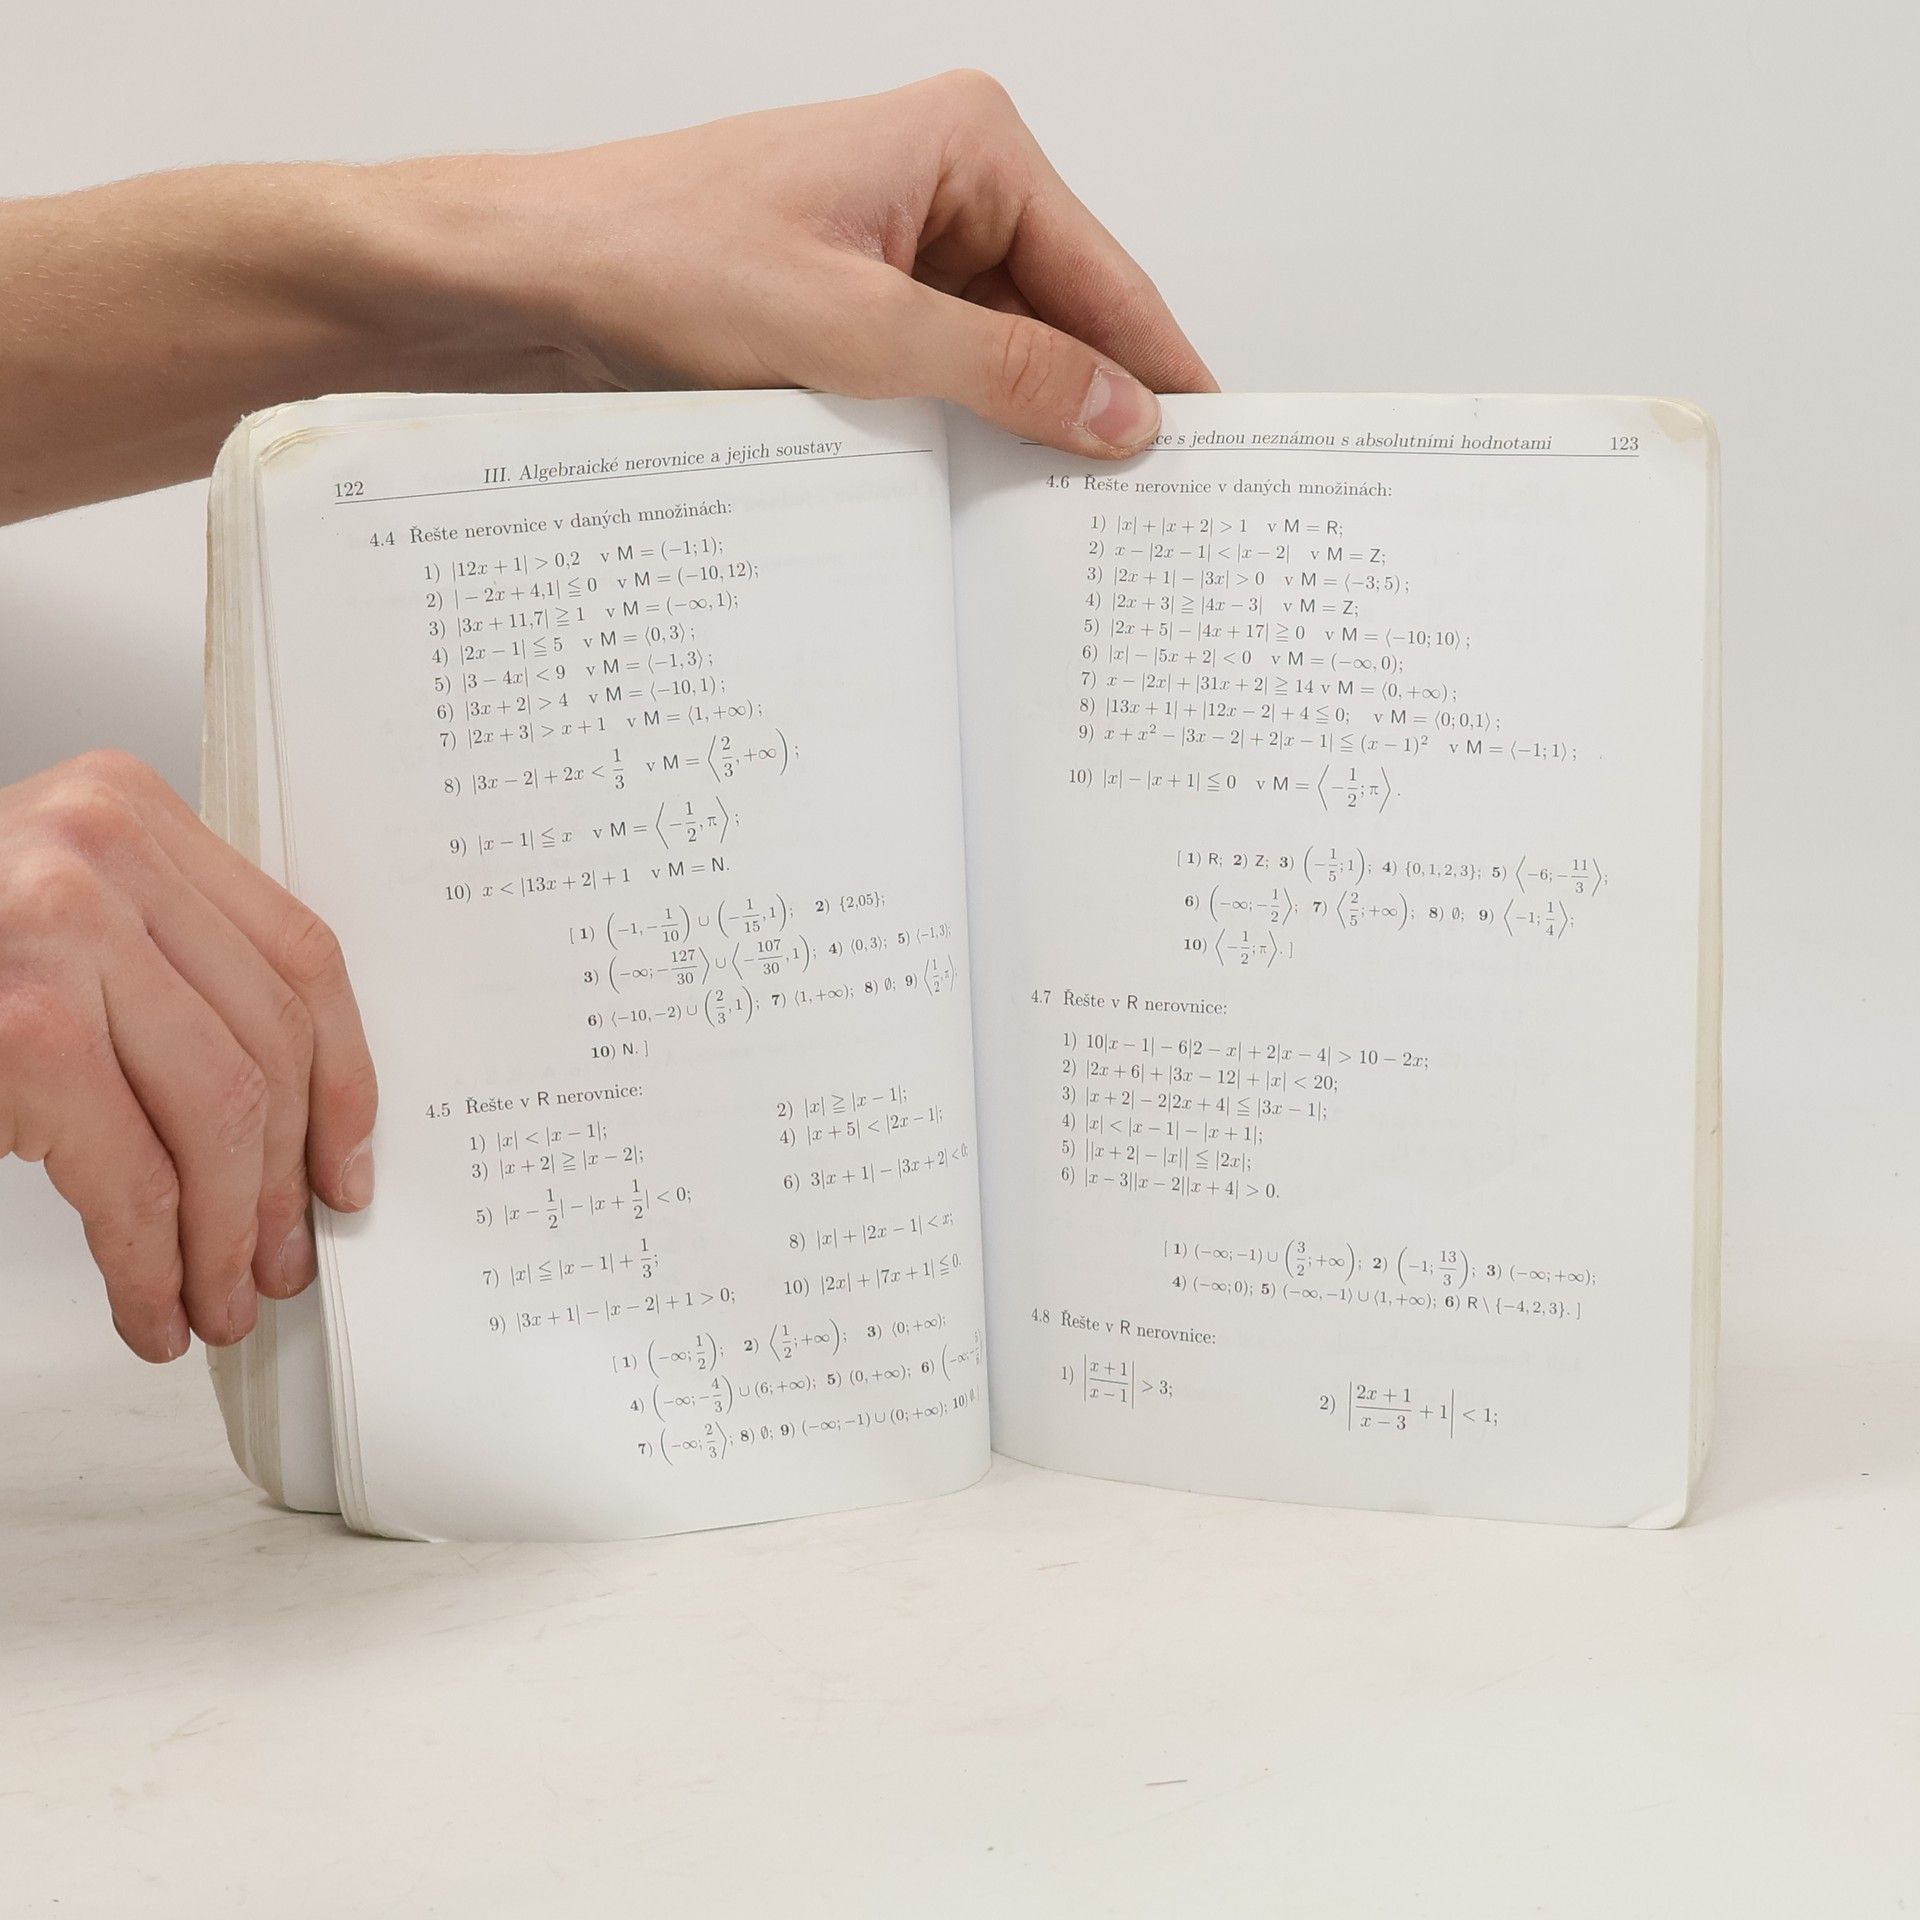 122
III. Algebraické nerovnice a jejich soustavy
4.4 Řešte nerovnice v daných množinách:
1) |12x + 1| > 0,2 v M = (−1; 1);
2) | − 2x + 4,1| ≦ 0 v M = (−10, 12);
3) |3x + 11,7| ≧ 1 v M = (−∞, 1);
4) |2x − 1| ≦ 5 v M = ⟨0, 3⟩;
5) |3 − 4x| < 9 v M = ⟨−1, 3⟩;
6) |3x + 2| > 4 v M = ⟨−10, 1);
7) |2x + 3| > x + 1 v M = ⟨1, +∞);
8) |3x − 2| + 2x < 1/3 v M = ⟨2/3, +∞);
9) |x − 1| ≦ x v M = ⟨−1/2, π⟩;
10) x < |13x + 2| + 1 v M = N.
[ 1) (−1, −1/10) ∪ (−1/15, 1); 2) {2,05};
3) (−∞; −127/30⟩ ∪ ⟨−107/30, 1); 4) ⟨0, 3⟩; 5) (−1, 3);
6) ⟨−10, −2) ∪ (2/3, 1); 7) ⟨1, +∞); 8) ∅; 9) ⟨1/2, π⟩;
10) N. ]
4.5 Řešte v R nerovnice:
1) |x| < |x − 1|; 2) |x| ≧ |x − 1|;
3) |x + 2| ≧ |x − 2|; 4) |x + 5| < |2x − 1|;
5) |x − 1/2| − |x + 1/2| < 0; 6) 3|x + 1| − |3x + 2| < 0;
7) |x| ≦ |x − 1| + 1/3; 8) |x| + |2x − 1| < x;
9) |3x + 1| − |x − 2| + 1 > 0; 10) |2x| + |7x + 1| ≦ 0.
[ 1) (−∞; 1/2); 2) ⟨1/2; +∞); 3) ⟨0; +∞);
4) (−∞; −4/3) ∪ (6; +∞); 5) (0, +∞); 6) (−∞; −5/6)
7) (−∞; 2/3⟩; 8) ∅; 9) (−∞; −1) ∪ (0; +∞); 10) ∅. ]
ce s jednou neznámou s absolutními hodnotami 123
4.6 Řešte nerovnice v daných množinách:
1) |x| + |x + 2| > 1 v M = R;
2) x − |2x − 1| < |x − 2| v M = Z;
3) |2x + 1| − |3x| > 0 v M = ⟨−3; 5);
4) |2x + 3| ≧ |4x − 3| v M = Z;
5) |2x + 5| − |4x + 17| ≧ 0 v M = ⟨−10; 10⟩;
6) |x| − |5x + 2| < 0 v M = (−∞, 0);
7) x − |2x| + |31x + 2| ≧ 14 v M = ⟨0, +∞);
8) |13x + 1| + |12x − 2| + 4 ≦ 0; v M = ⟨0; 0,1⟩;
9) x + x² − |3x − 2| + 2|x − 1| ≦ (x − 1)² v M = ⟨−1; 1⟩;
10) |x| − |x + 1| ≦ 0 v M = ⟨−1/2; π⟩.
[ 1) R; 2) Z; 3) (−1/5; 1); 4) {0, 1, 2, 3}; 5) ⟨−6; −11/3⟩;
6) (−∞; −1/2); 7) ⟨2/5; +∞); 8) ∅; 9) ⟨−1; 1/4⟩;
10) ⟨−1/2; π⟩. ]
4.7 Řešte v R nerovnice:
1) 10|x − 1| − 6|2 − x| + 2|x − 4| > 10 − 2x;
2) |2x + 6| + |3x − 12| + |x| < 20;
3) |x + 2| − 2|2x + 4| ≦ |3x − 1|;
4) |x| < |x − 1| − |x + 1|;
5) ||x + 2| − |x|| ≦ |2x|;
6) |x − 3||x − 2||x + 4| > 0.
[ 1) (−∞; −1) ∪ (3/2; +∞); 2) (−1; 13/3); 3) (−∞; +∞);
4) (−∞; 0); 5) (−∞, −1⟩ ∪ ⟨1, +∞); 6) R \ {−4, 2, 3}. ]
4.8 Řešte v R nerovnice:
1) |(x + 1)/(x − 1)| > 3; 2) |(2x + 1)/(x − 3) + 1| < 1;